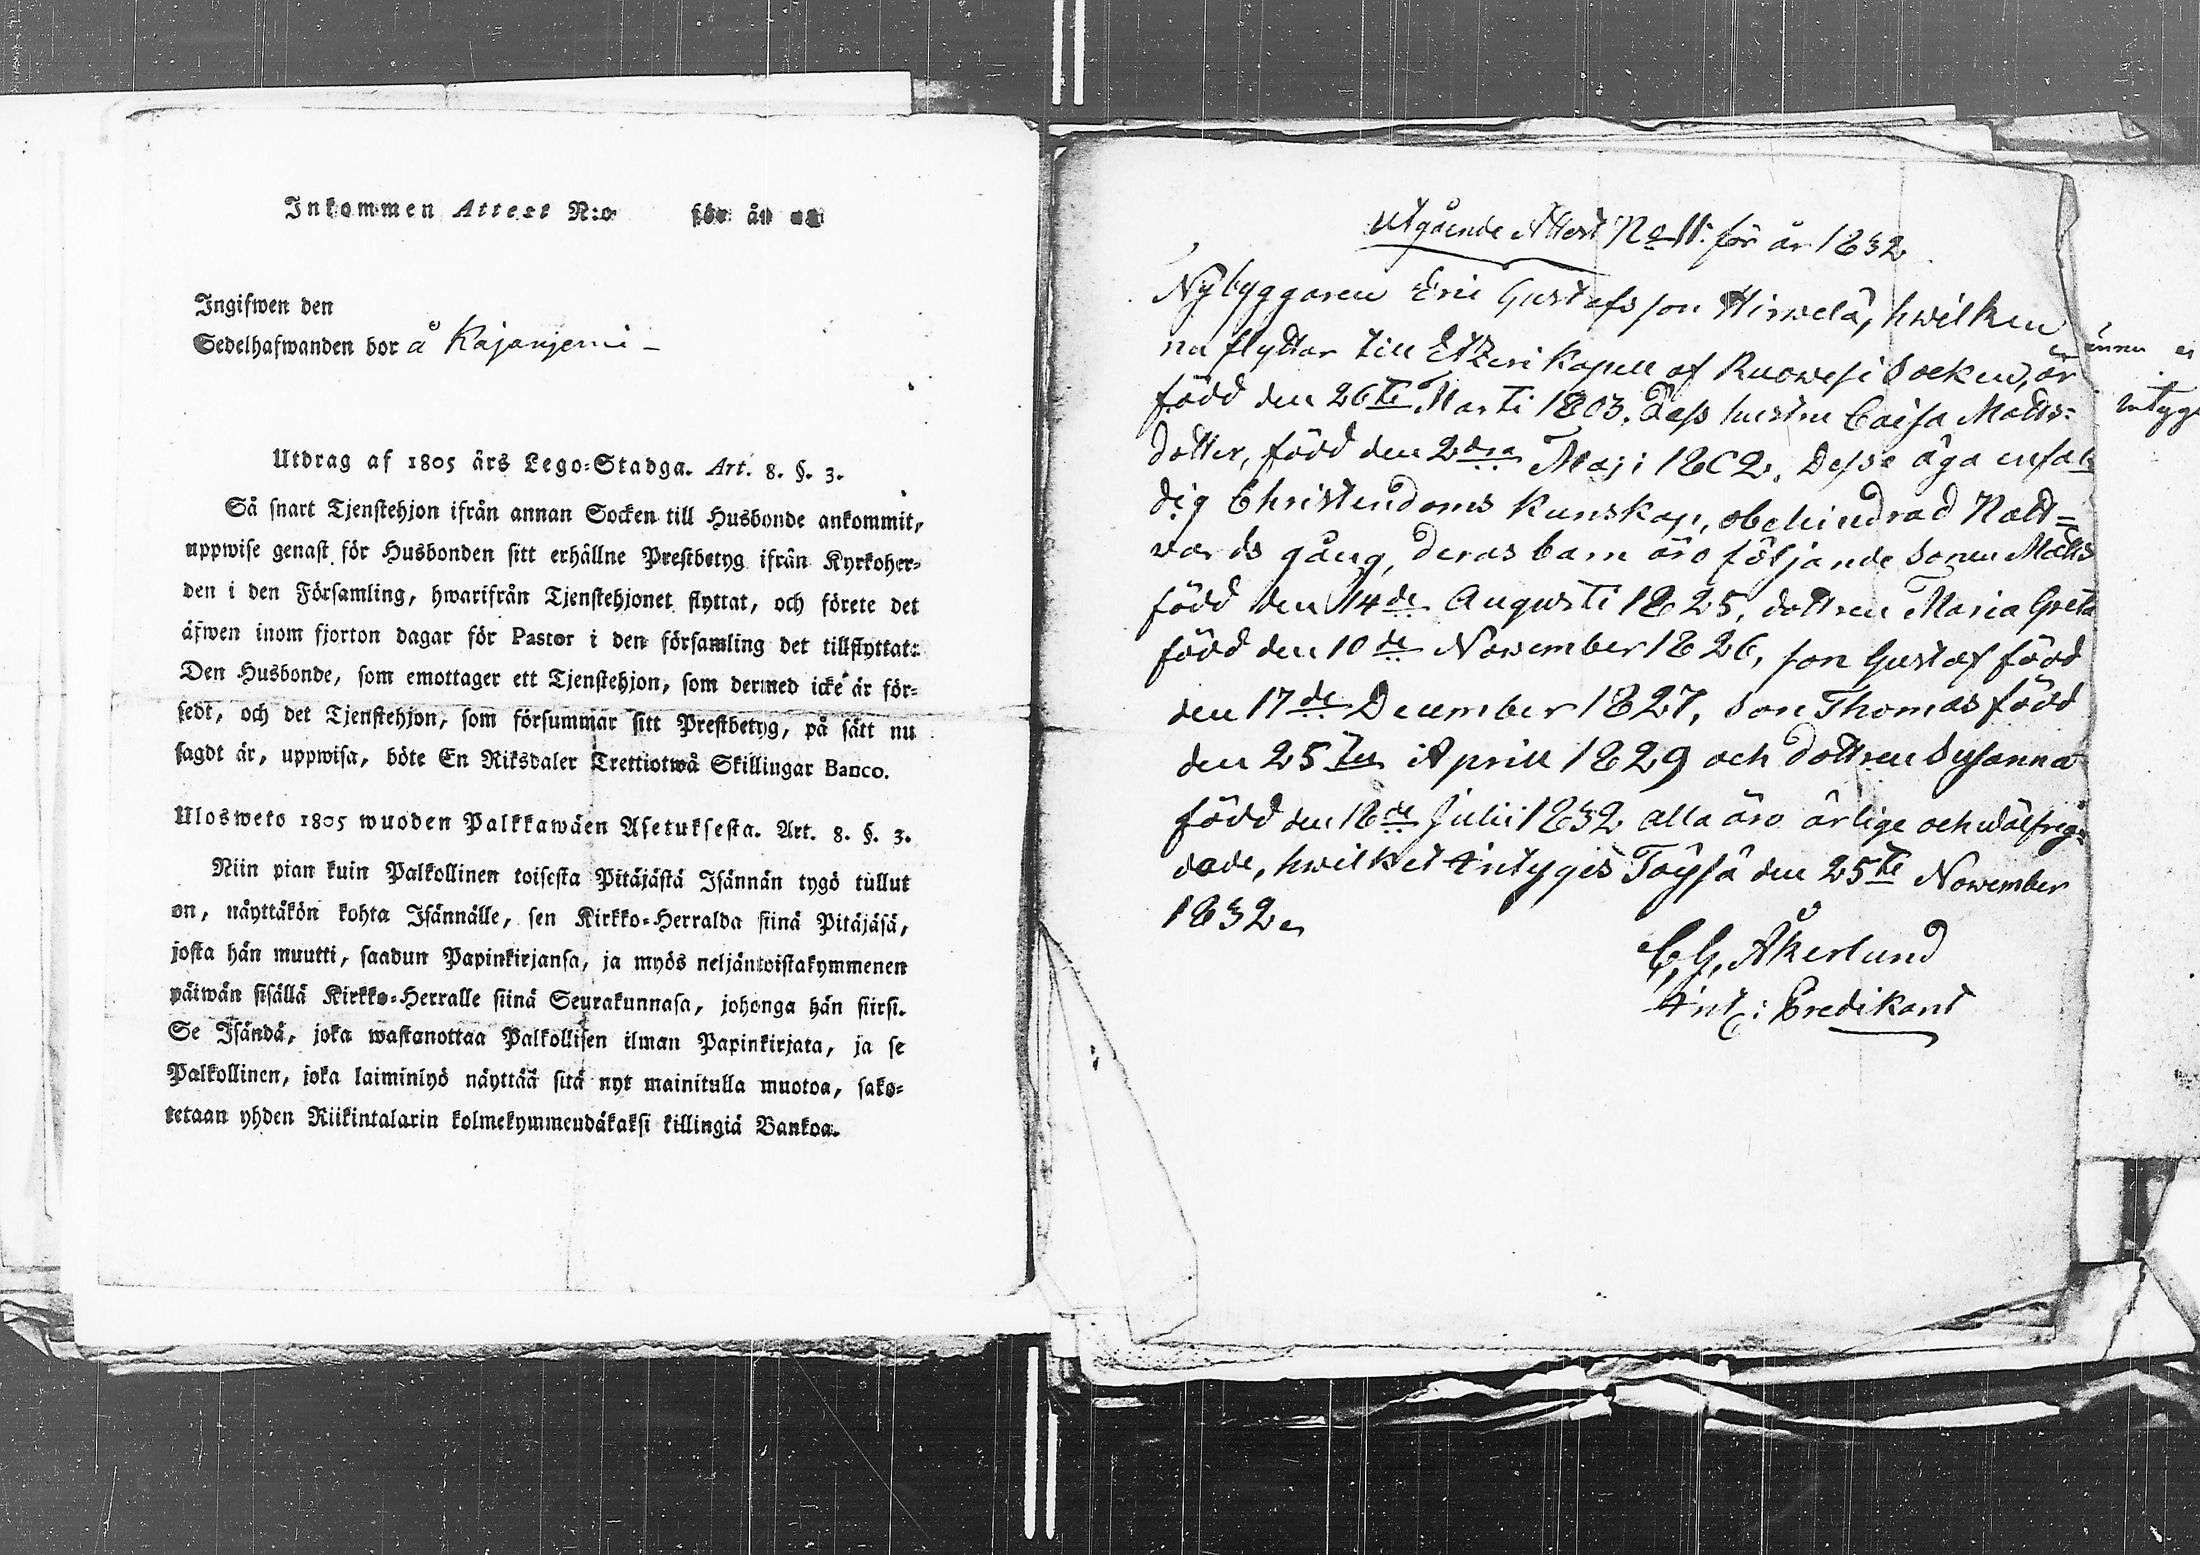 Inkommen Attest N:o för år
Ingifwen den
Sedelhafwanden bor å Kajanjemi –
Utdrag af 1805 års Lego-Stadga. Art. 8. §. 3.
Så snart Tjenstehjon ifrån annan Socken till Husbonde ankommit,
uppwise genast för Husbonden sitt erhållne Prestbetyg ifrån Kyrkoher-
den i den Församling, hwarifrån Tjenstehjonet flyttat, och förete det
äfwen inom fjorton dagar för Pastor i den församling det tillflyttat:
Den Husbonde, som emottager ett Tjenstehjon, som dermed icke är för-
sedt, och det Tjenstehjon, som försummar sitt Prestbetyg, på sätt nu
sagdt är, uppwisa, böte En Riksdaler Trettiotwå Skillingar Banco.
Ulosweto 1805 wuoden Palkkawäen Asetuksesta. Art. 8. §. 3.
Niin pian kuin Palkollinen toisesta Pitäjästä Isännän tygö tullut
on, näyttäkön kohta Isännälle, sen Kirkko-Herralda siinä Pitäjäsä,
josta hän muutti, saadun Papinkirjansa, ja myös neljäntoistakymmenen
päiwän sisällä Kirkko-Herralle siinä Seurakunnasa, johonga hän siirsi.
Se Isändä, joka wastanottaa Palkollisen ilman Papinkirjata, ja se
Palkollinen, joka laiminlyö näyttää sitä nyt mainitulla muotoa, sako-
tetaan yhden Riikintalarin kolmekymmendäkaksi killingiä Bankoa.
Utgående Attest No 11. för år 1832
Nybyggaren Eric Gustafsson Hirwelä, hwilken
nu flyttar till Etzeri Kapell af Ruowesi Socken, är
född den 26te Marti 1803. Dess hustru Caisa Matts-
dotter, född den 2dra Maji 1802. Desse äga enfal-
dig Christendoms kunskap, obehindrad Natt=
vards gång, deras barn äro följande Sonen Matts
född den 14de Augusti 1825, dottren Maria Greta
född den 10de November 1826, son Gustaf född
den 17de December 1827, Son Thomas född
den 25ten Aprill 1829 och dottren Susanna
född den 18de Julii 1832 alla äro ärlige och wälfreg=
dade, hwilket intygas Töysä den 25te November
1832.
C. G. Åkerlund
Predikant
intyga